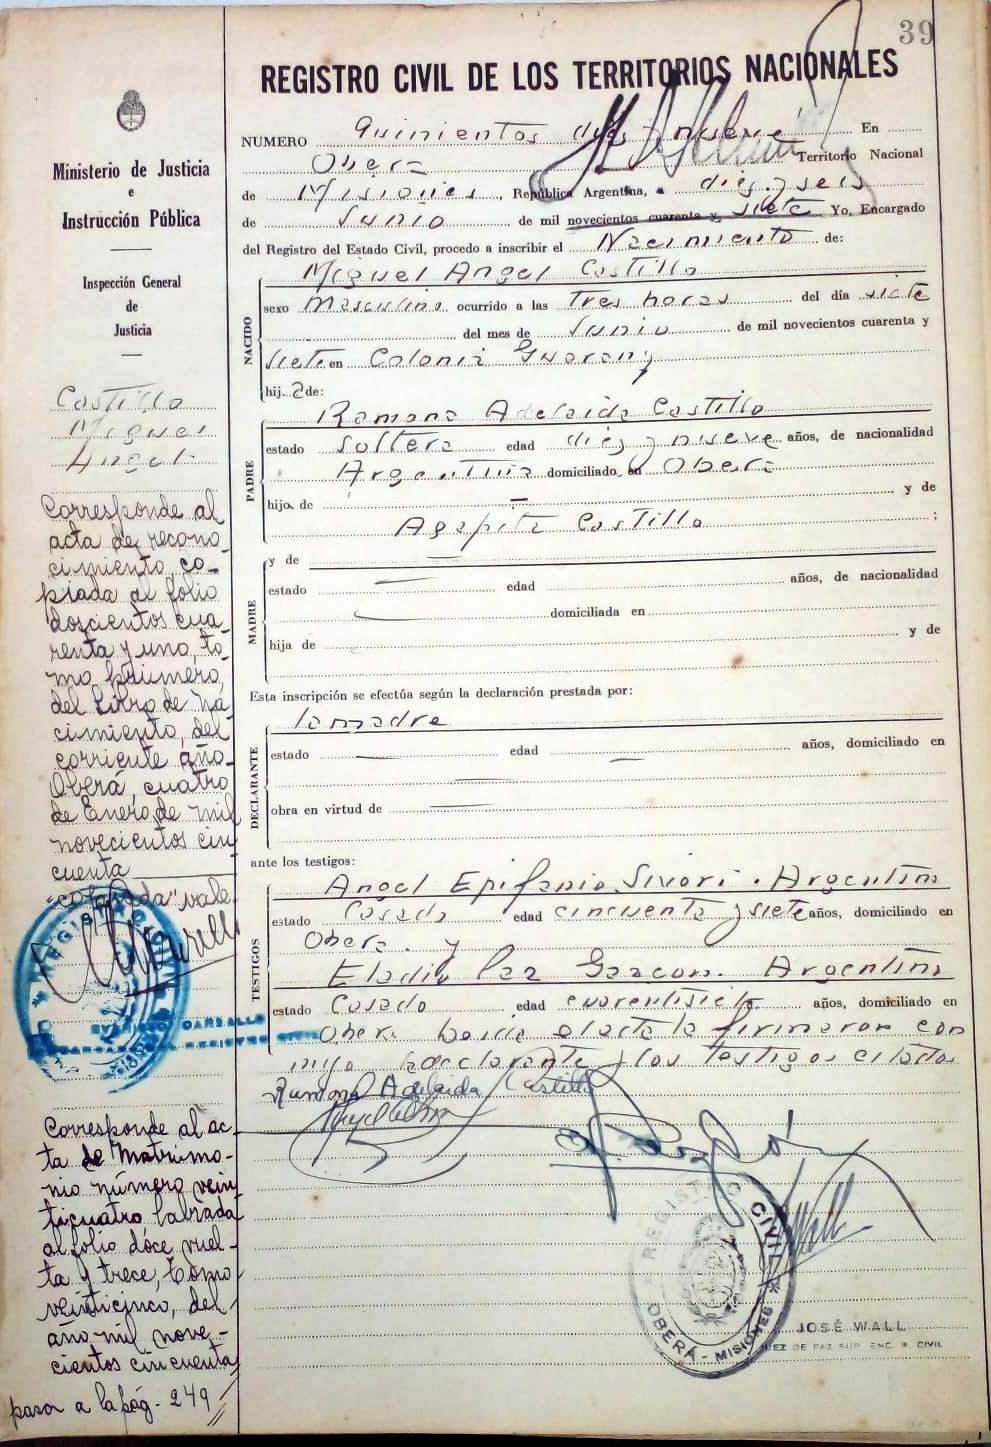 39
REGISTRO CIVIL DE LOS TERRITORIOS NACIONALES
NUMERO Quinientos diez y nueve En
Oberá Territorio Nacional
de Misiones, República Argentina, a diez y seis
de Junio de mil novecientos cuarenta y siete Yo, Encargado
del Registro del Estado Civil, procedo a inscribir el Nacimiento de:
NACIDO
Miguel Angel Castillo
sexo Masculino ocurrido a las Tres horas del día siete
del mes de Junio de mil novecientos cuarenta y
siete en Colonia Guarany
hij o de:
PADRE
Ramona Adelaida Castillo
estado soltera edad diez y nueve años, de nacionalidad
Argentina domiciliado en Oberá
hijo de — y de
Agapita Castillo ;
MADRE
y de —
estado — edad años, de nacionalidad
domiciliada en
hija de y de
Esta inscripción se efectúa según la declaración prestada por:
DECLARANTE
la madre
estado — edad — años, domiciliado en
—
obra en virtud de —
ante los testigos:
TESTIGOS
Angel Epifanio Sivori. Argentino
estado Casado edad cincuenta y siete años, domiciliado en
Oberá. y
Eladio Paz Garzon. Argentino
estado Casado edad cuarentisiete años, domiciliado en
Oberá el acta la firmaron con
migo declarante y los testigos citados
Ramona Adelaida Castillo
REGISTRO CIVIL
OBERÁ - MISIONES
JOSÉ WALL
JUEZ DE PAZ SUP. ENC. R. CIVIL
Ministerio de Justicia
e
Instrucción Pública
Inspección General
de
Justicia
Castillo
Miguel
Angel
Corresponde al
acta de recono-
cimiento, co-
piada al folio
doscientos cua-
renta y uno, to-
mo primero,
del Libro de Na-
cimiento, del
corriente año-
Oberá, cuatro
de Enero de mil
novecientos cin
cuenta
"copiada" vale
REGISTRO CIVIL
Corresponde al ac-
ta de Matrimo-
nio número vein
ticuatro, labrada
al folio dóce vuel-
ta y trece, tomo
veinticinco, del
año mil nove-
cientos cincuenta
pasa a la pág. 249